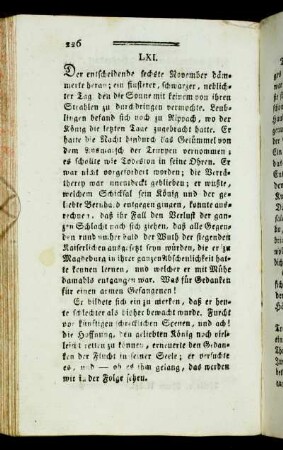 226
LXI.
Der entscheidende sechste November däm⸗
merte heran; ein finsterer, schwarzer, neblich⸗
ter Tag den die Sonne mit keinem von ihren
Strahlen zu durchdringen vermochte. Leub⸗
lingen befand sich noch zu Rippach, wo der
König die letzten Tage zugebracht hatte. Er
hatte die Nacht hindurch das Getümmel von
dem der Truppen vernommen;
es schallte wie Todeston in seine Ohren. Er
war nicht vorgefordert worden; die Verrä⸗
therey war unentdeckt geblieben; er wußte,
welchem Schicksal sein König und der ge⸗
liebte Bernhard entgegen gingen, konnte aus⸗
rechnen, daß ihr Fall den Verlust der gan⸗
zen Schlacht nach sich ziehen, daß alle Gegen⸗
den rund umher bald der Wuth der siegenden
Kaiserlichen ausgesetzt seyn würden, die er zu
Magdeburg in ihrer ganzen Abscheulichkeit hat⸗
te kennen lernen, und welcher er mit Mühe
damahls entgangen war. Was für Gedanken
für einen armen Gefangenen!
Er bildete sich ein zu merken, daß er heu⸗
te schlechter als bisher bewacht wurde. Furcht
vor künftigen schrecklichen Scenen, und ach!
die Hoffnung, den geliebten König noch viel⸗
leicht retten zu können, erneuerte den Gedan⸗
ken der Flucht in seiner Seele; er versuchte
es, und — ob es ihm gelang, das werden
wir in der Folge sehen.